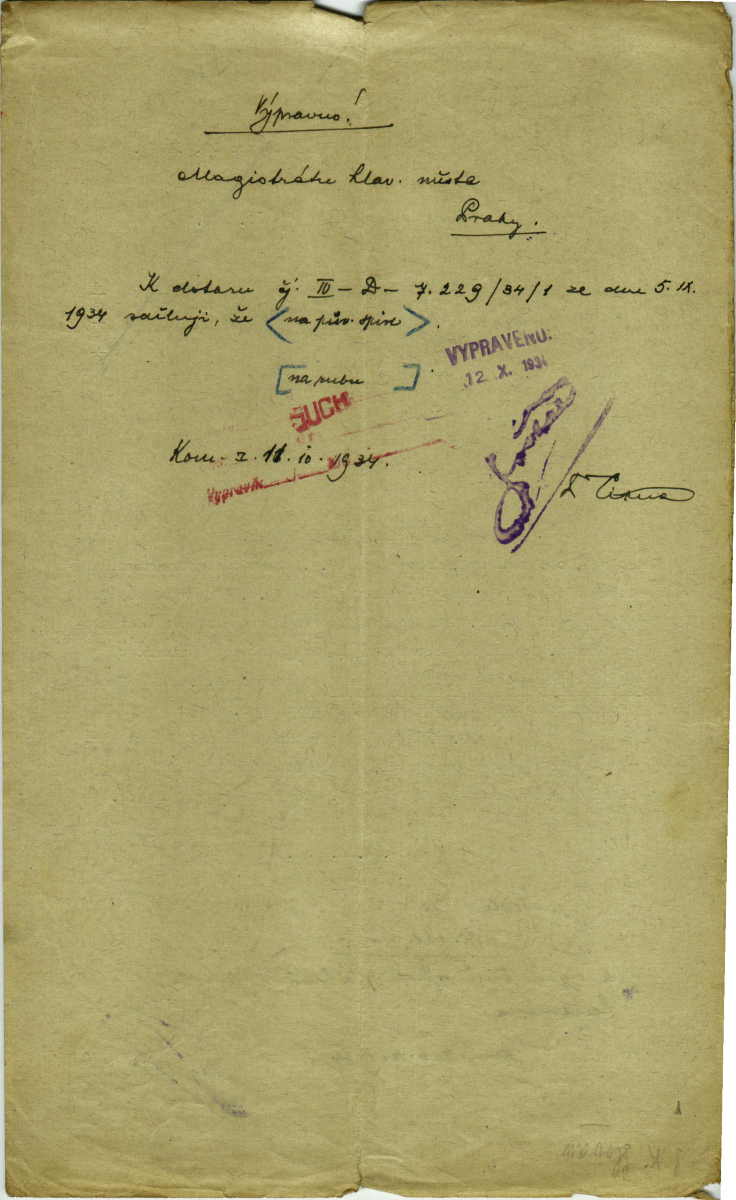 Výpravno!
Magistrátu hlav. města
Prahy.
K dotazu čj. IV – D – 7.229/34/1 ze dne 5.IX.
1934 sděluji, že <na pův. spise>.
[na rubu]
VYPRAVENO:
12 X. 1934
ŠUCH
Kom. z. 11. 10. 1934.
Vypravil
Dr